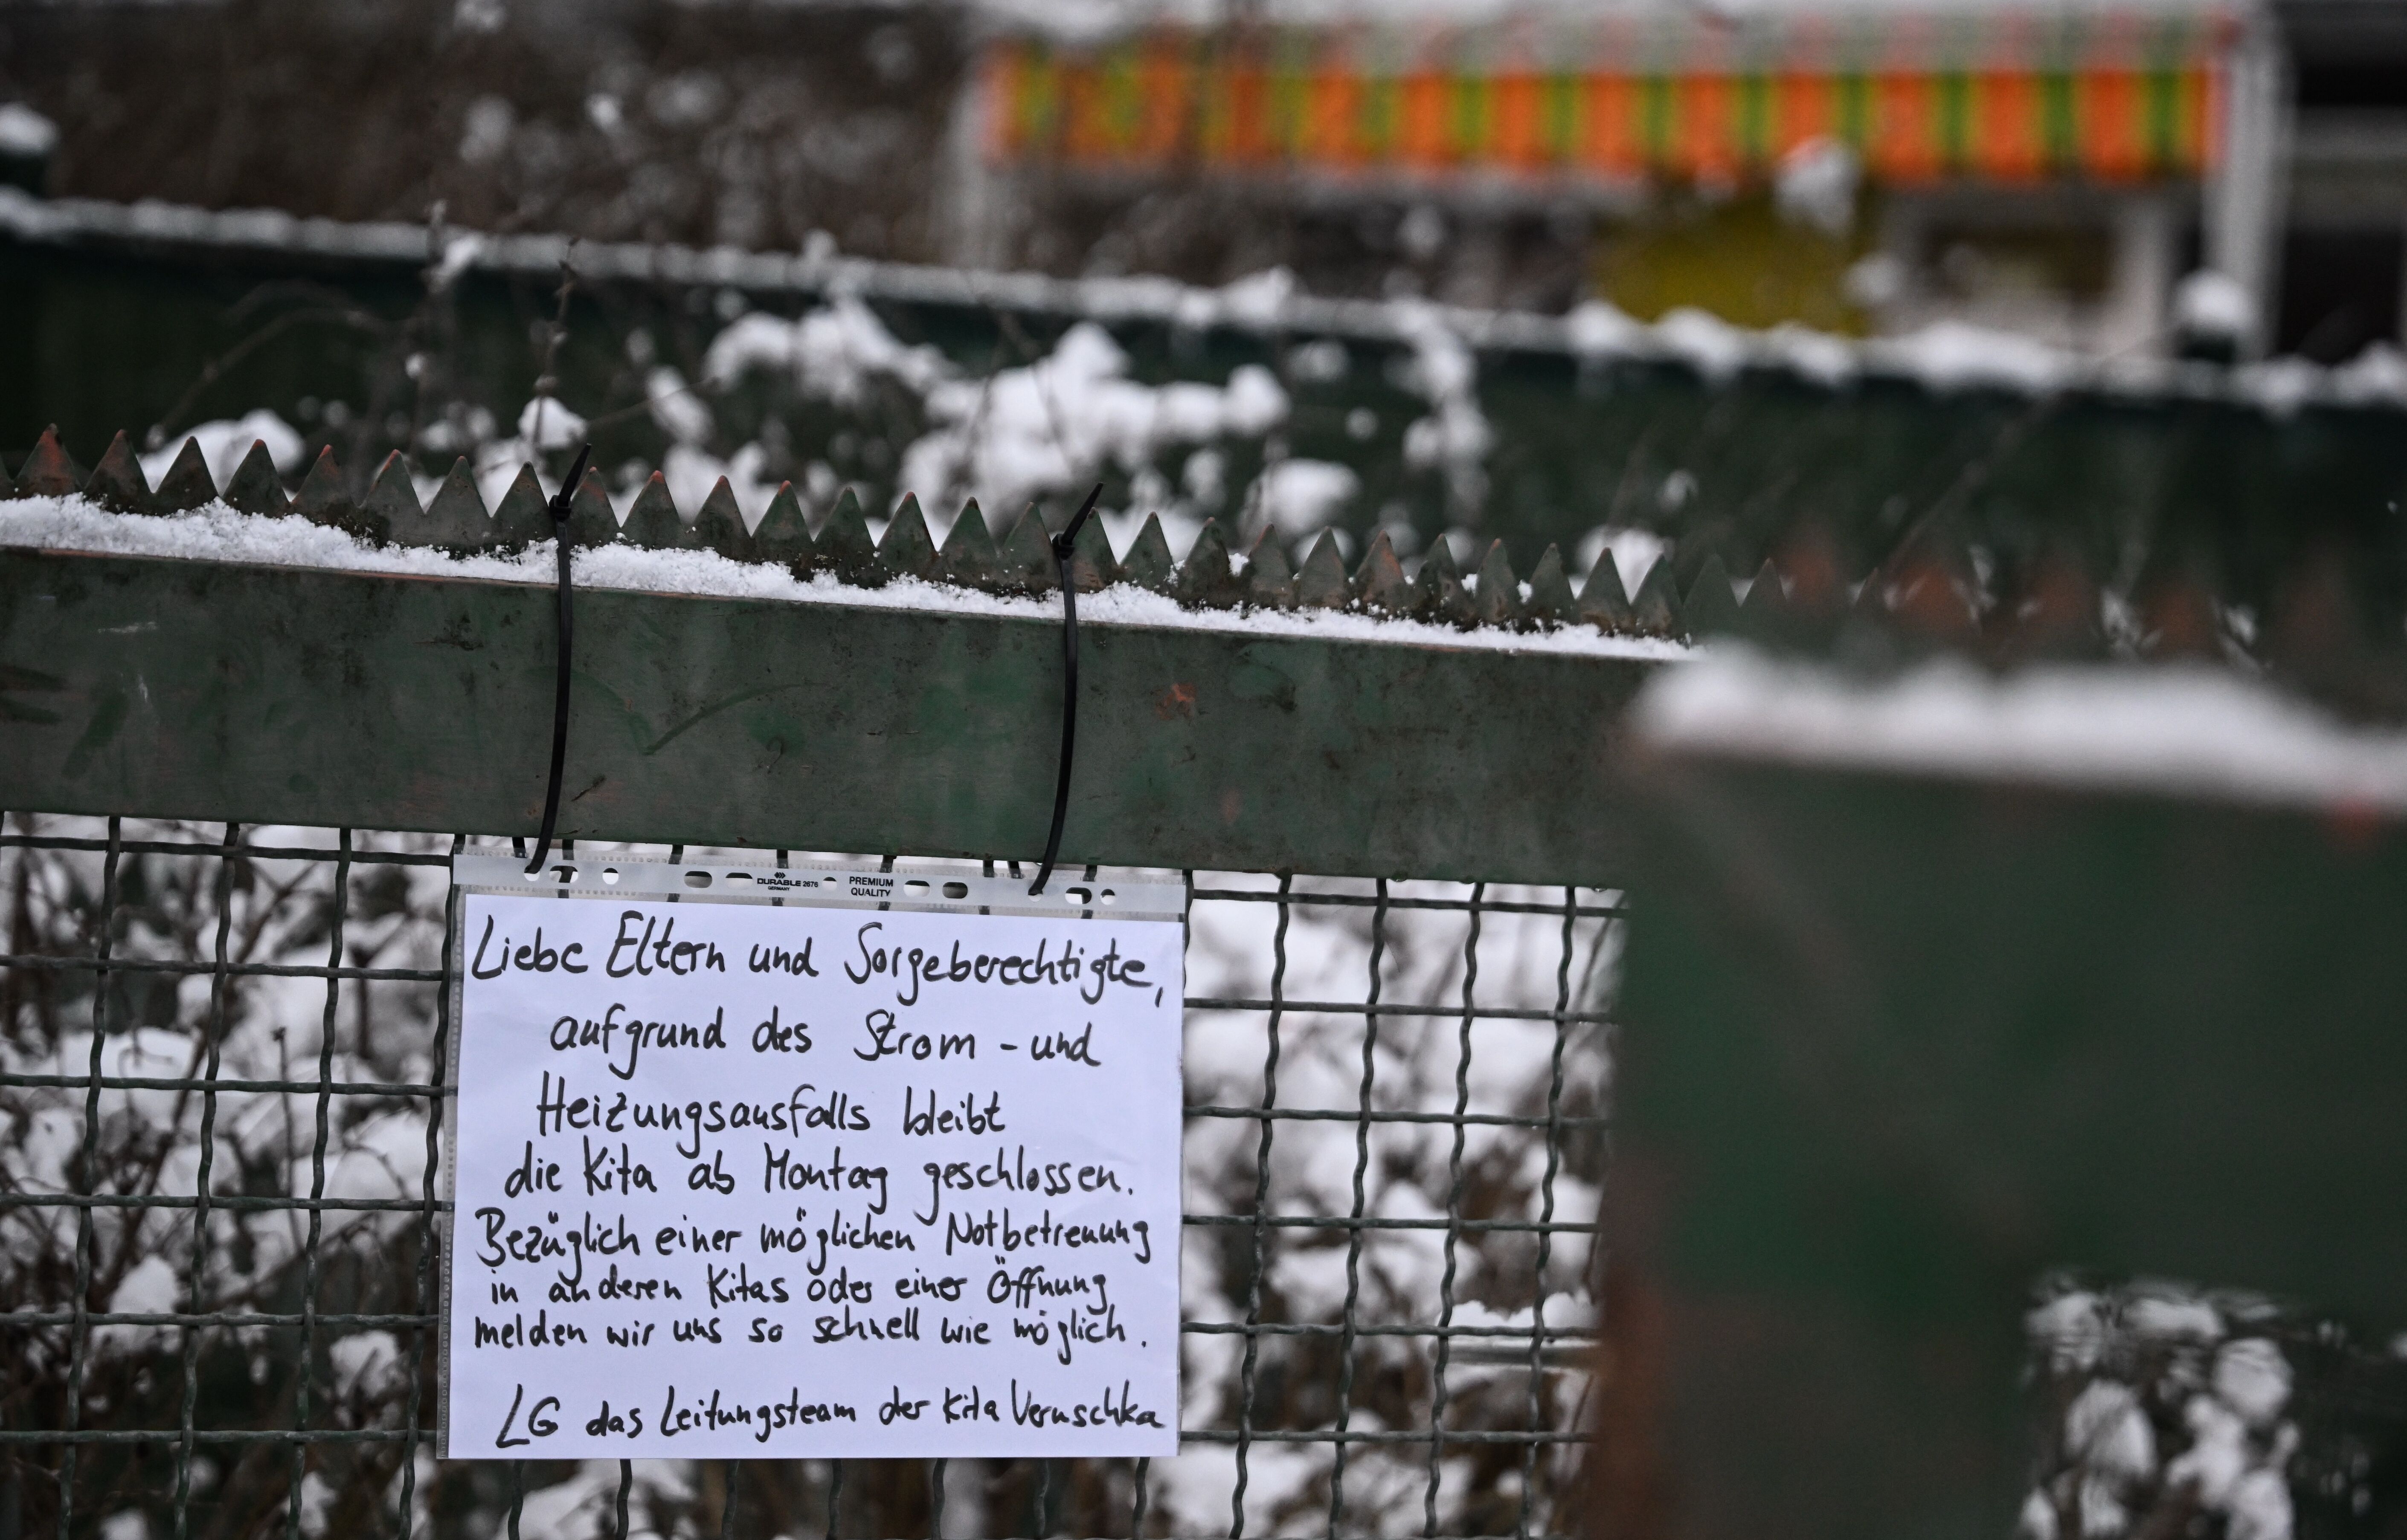 DURABLE 2676 PREMIUM
GERMANY QUALITY
Liebe Eltern und Sorgeberechtigte,
aufgrund des Strom - und
Heizungsausfalls bleibt
die Kita ab Montag geschlossen.
Bezüglich einer möglichen Notbetreuung
in anderen Kitas oder einer Öffnung
melden wir uns so schnell wie möglich.
LG das Leitungsteam der Kita Veruschka